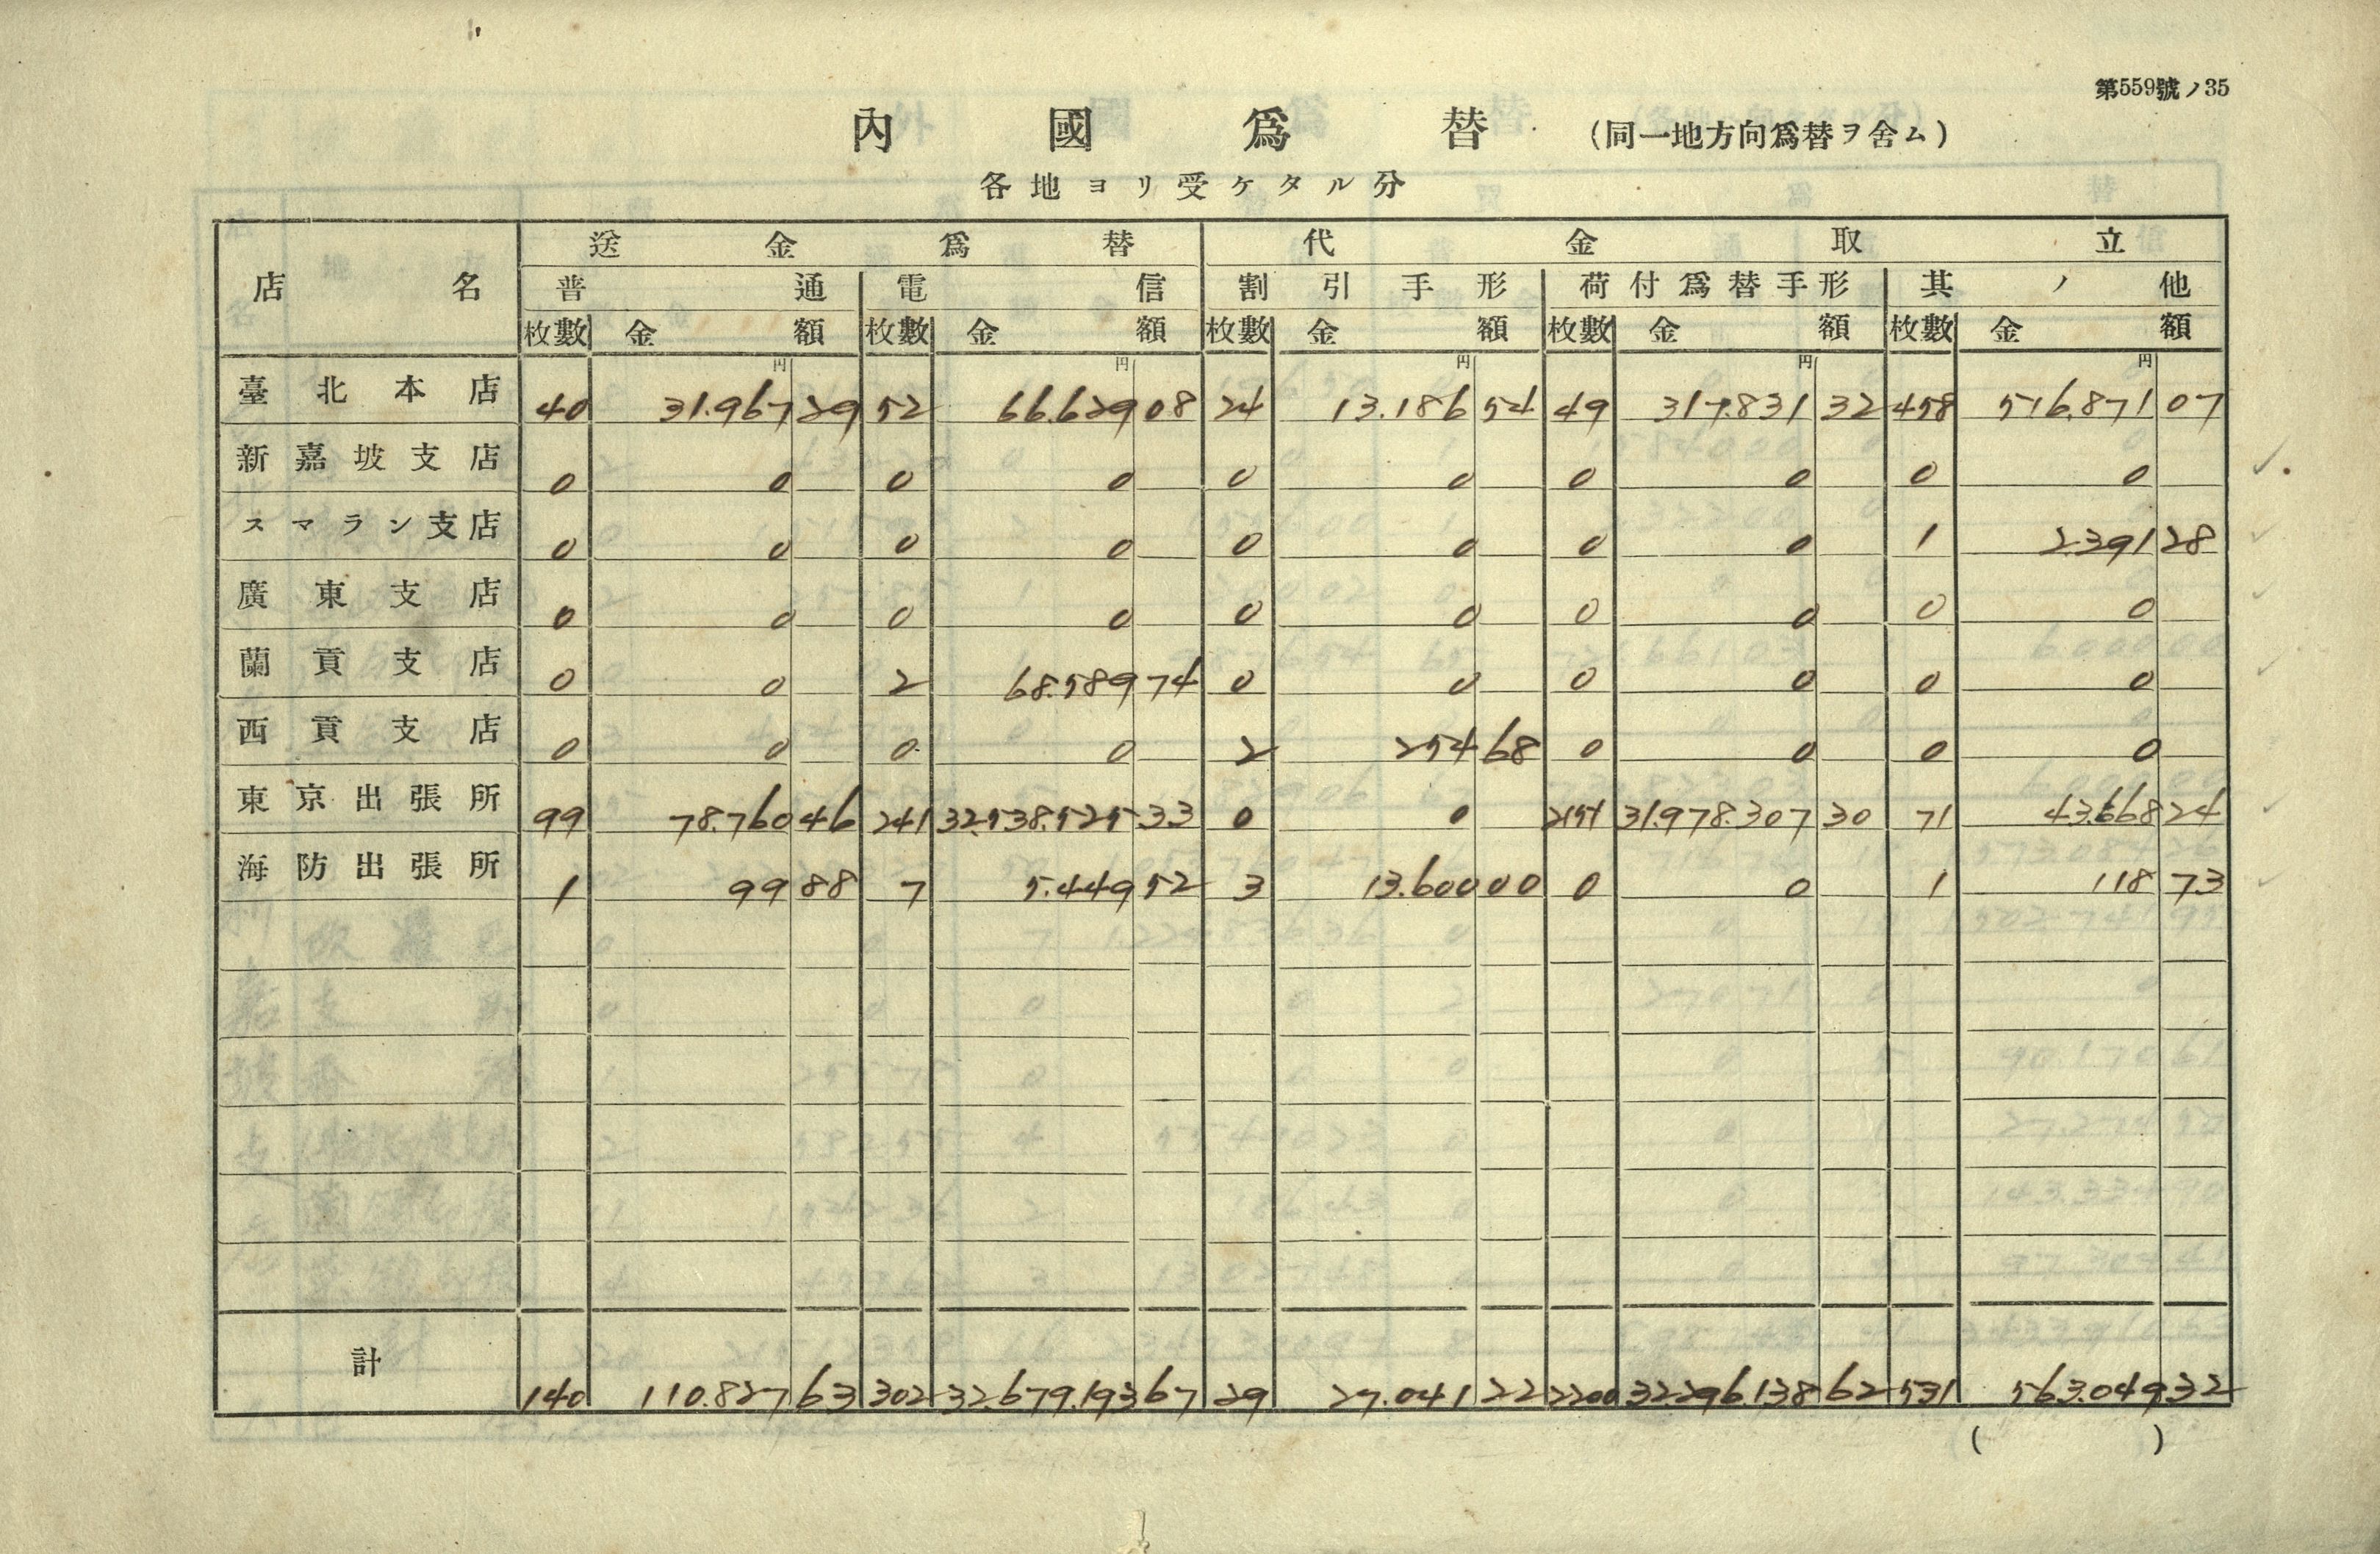 第559號ノ35
內國爲替 (同一地方向爲替ヲ舍ム)
各地ヨリ受ケタル分
店名 送金爲替 代金取立
普通 電信 割引手形 荷付爲替手形 其ノ他
枚數 金額 枚數 金額 枚數 金額 枚數 金額 枚數 金額
円 円 円 円 円
臺北本店 40 31.967 29 52 66.629 08 24 13.186 54 49 317.831 32 458 516.871 07
新嘉坡支店 0 0 0 0 0 0 0 0 0 0
スマラン支店 0 0 0 0 0 0 0 0 1 2.391 28
廣東支店 0 0 0 0 0 0 0 0 0 0
蘭貢支店 0 0 2 68.589 74 0 0 0 0 0 0
西貢支店 0 0 0 0 2 254 68 0 0 0 0
東京出張所 99 78.760 46 241 32.538.525 33 0 0 2151 31.978.307 30 71 43.668 24
海防出張所 1 99 88 7 5.449 52 3 13.600 00 0 0 1 118 73
計 140 110.827 63 302 32.679.193 67 29 27.041 22 2200 32.296.138 62 531 563.049 32
( )